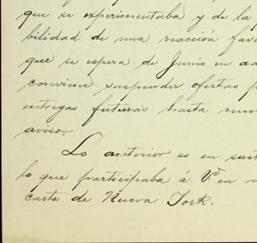 que se experimentaba y de la p
bilidad de una reacción fav
que se espera de Junio en ad
conviene suspender ofertas p
entregas futuras hasta nue
aviso.
Lo anterior es en sus
lo que participaba á Vº en m
carta de Nueva York.